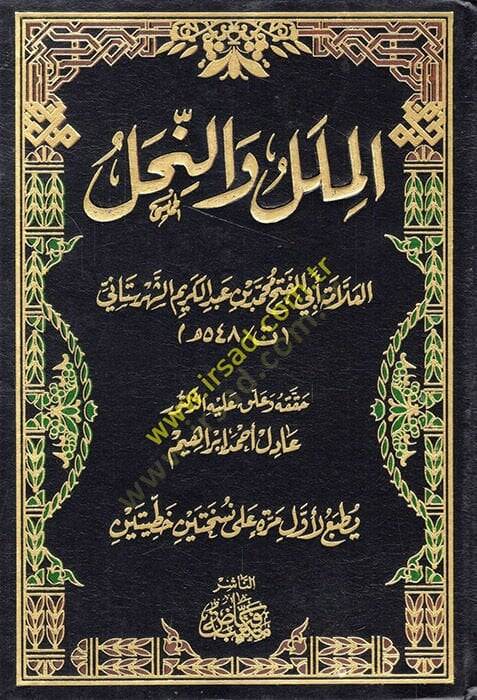 المِلَلُ وَالنِّحَلُ
العلّامة أبي الفتح محمّد بن عبد الكريم الشّهرستانيّ
(ت ٥٤٨هـ)
حققه وعلق عليه الدكتور
عادل أحمد إبراهيم
يُطبعُ لأوّل مَرّة عَلى نُسْخَتَيْنِ خَطِّيتَيْن
الناشر
www.irsad.com.tr